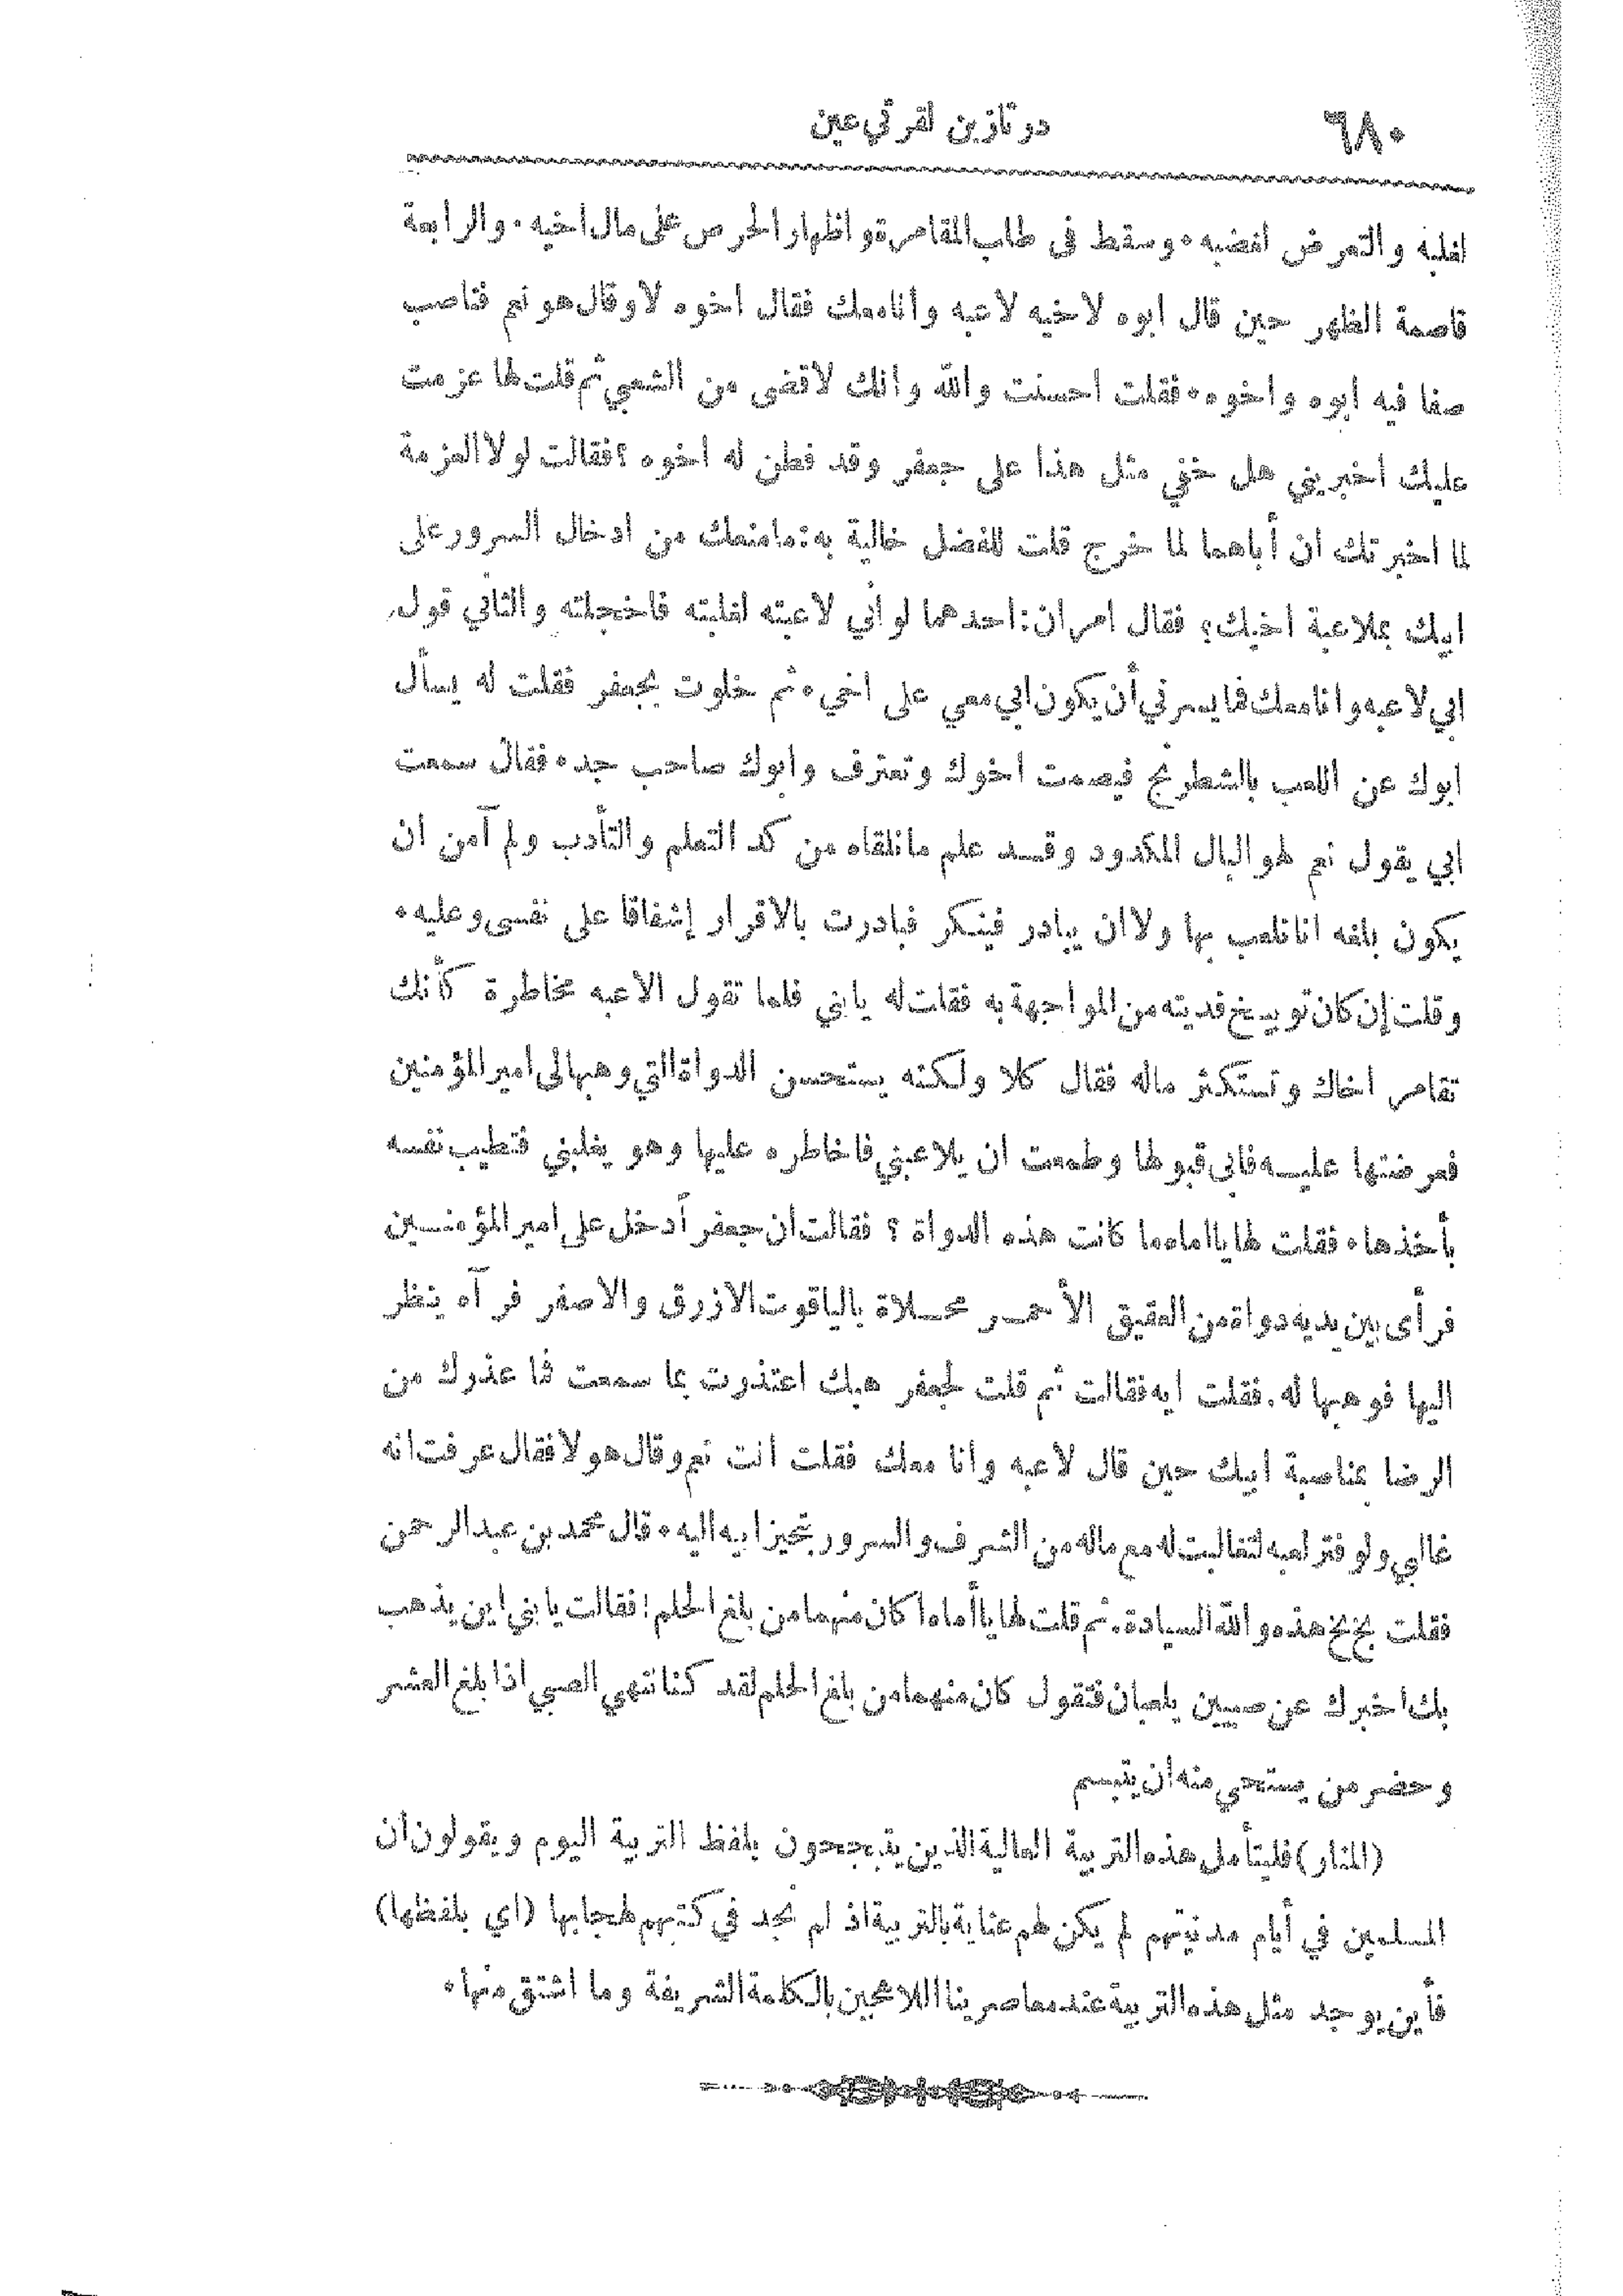 ٦٨٠ درتازين لقرتي عين
لغلبه والتعرض لغضبه · وسقط في طلب المقامرة واظهار الحرص على مال اخيه · والرابعة
قاصمة الظهر حين قال ابوه لاخيه لاعبه وأنا معك فقال اخوه لا وقال هو نعم فناصب
صفا فيه ابوه واخوه · فقلت احسنت والله وانك لاقضى من الشعبي ثم قلت لها عزمت
عليك أخبريني هل خفي مثل هذا على جعفر وقد فطن له أخوه ؟ فقالت لولا العزمة
لما اخبرتك ان أباهما لما خرج قلت للفضل خالية به : مامنعك من ادخال السرور على
ابيك بملاعبة أخيك ؟ فقال امران : احدهما لو أني لاعبته لغلبته فاخجلته والثاني قول
ابي لاعبه وانا معك فما يسرني أن يكون ابي معي على اخي · ثم خلوت بجعفر فقلت له يسأل
ابوك عن اللعب بالشطرنج فيصمت اخوك وتعترف وابوك صاحب جد · فقال سمعت
ابي يقول نعم لهو البال المكدود وقد علم مانلقاه من كد التعلم والتأدب ولم آمن ان
يكون بلغه انا نلعب بها ولا ان يبادر فينكر فبادرت بالاقرار إشفاقا على نفسي وعليه ·
وقلت إن كان توبيخ فديته من المواجهة به فقلت له يا بني فلما تقول الاعبه مخاطرة كأنك
تقامر اخاك وتستكثر ماله فقال كلا ولكنه يستحسن الدواة التي وهبها لي امير المؤمنين
فعرضتها عليه فابى قبولها وطمعت ان يلاعبني فاخاطره عليها وهو يغلبني فتطيب نفسه
بأخذها · فقلت لها يا اماه ما كانت هذه الدواة ؟ فقالت ان جعفر أدخل على امير المؤمنين
فرأى بين يديه دواة من العقيق الأحمر محلاة بالياقوت الازرق والاصفر فرآه ينظر
اليها فوهبها له . فقلت ايه فقالت ثم قلت لجعفر هبك اعتذرت بما سمعت فما عذرك من
الرضا بمناصبة ابيك حين قال لاعبه وأنا معك فقلت انت نعم وقال هو لا فقال عرفت انه
غالبي ولو فتر لعبه لتغالبت له مع ماله من الشرف والسرور بتحيز ابيه اليه · قال محمد بن عبد الرحمن
فقلت بخ بخ هذه والله السيادة . ثم قلت لها يا أماه أما كان منهما من بلغ الحلم ! فقالت يا بني اين يذهب
بك اخبرك عن صبيين يلعبان فتقول كان منهما من بلغ الحلم لقد كنا ننهى الصبي اذا بلغ العشر
وحضر من يستحي منه ان يتبسم
(المنار) فليتأمل هذه التربية العالية الذين يتبجحون بلفظ التربية اليوم ويقولون ان
المسلمين في أيام مدنيتهم لم يكن لهم عناية بالتربية اذ لم نجد في كتبهم لهجا بها (اي بلفظها)
فأين يوجد مثل هذه التربية عند معاصرينا اللاهجين بالكلمة الشريفة وما اشتق منها ·